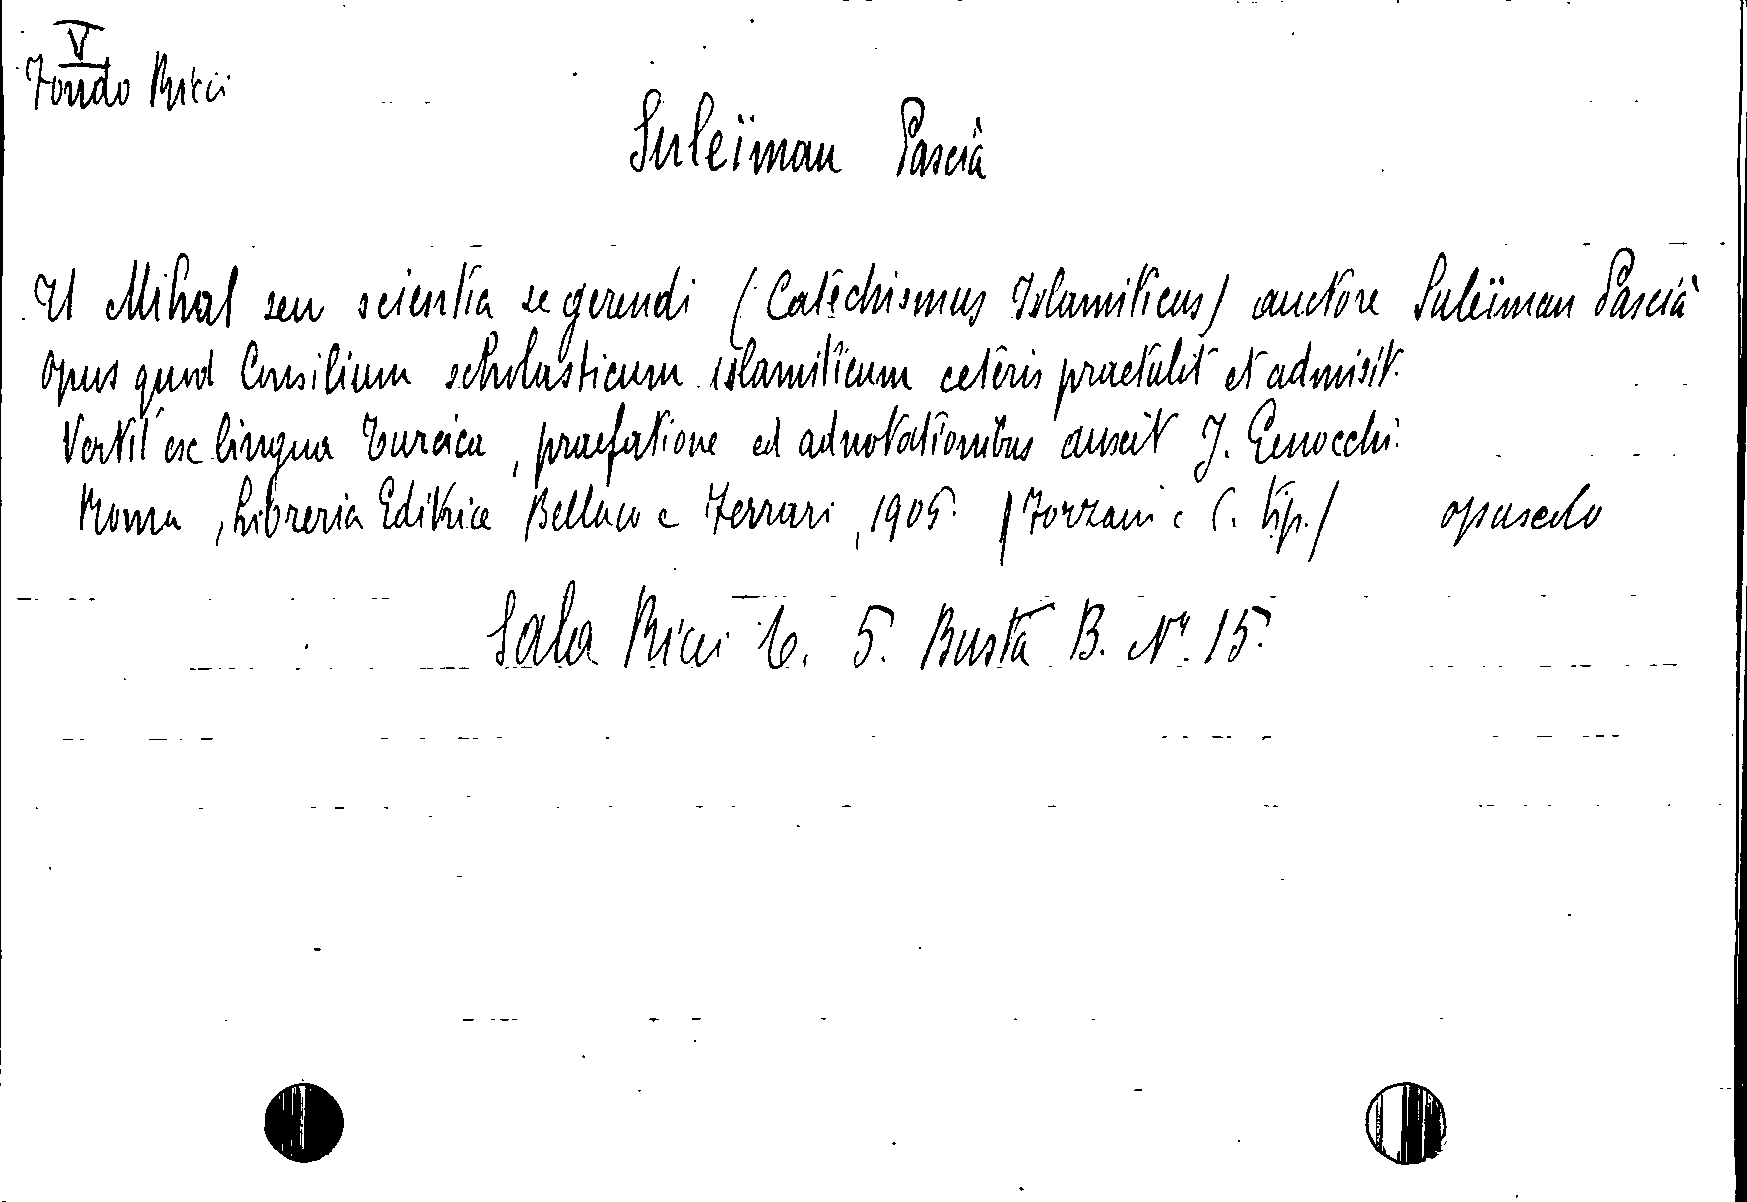 V
Fondo Ricci
Suleïman Pascià
Il Mihal seu scientia se gerendi (Catechismus Islamiticus) auctore Suleïman Pascià
opus quod Consilium scholasticum islamiticum ceteris praetulit et admisit.
Vertit ex lingua turcica, praefatione ed adnotationibus auxit J. Genocchi.
Roma, Libreria Editrice Bellaco e Ferrari, 1905. (Forzani e C. tip.) opuscolo
Sala Ricci 6. 5. Busta B. Nº. 15.